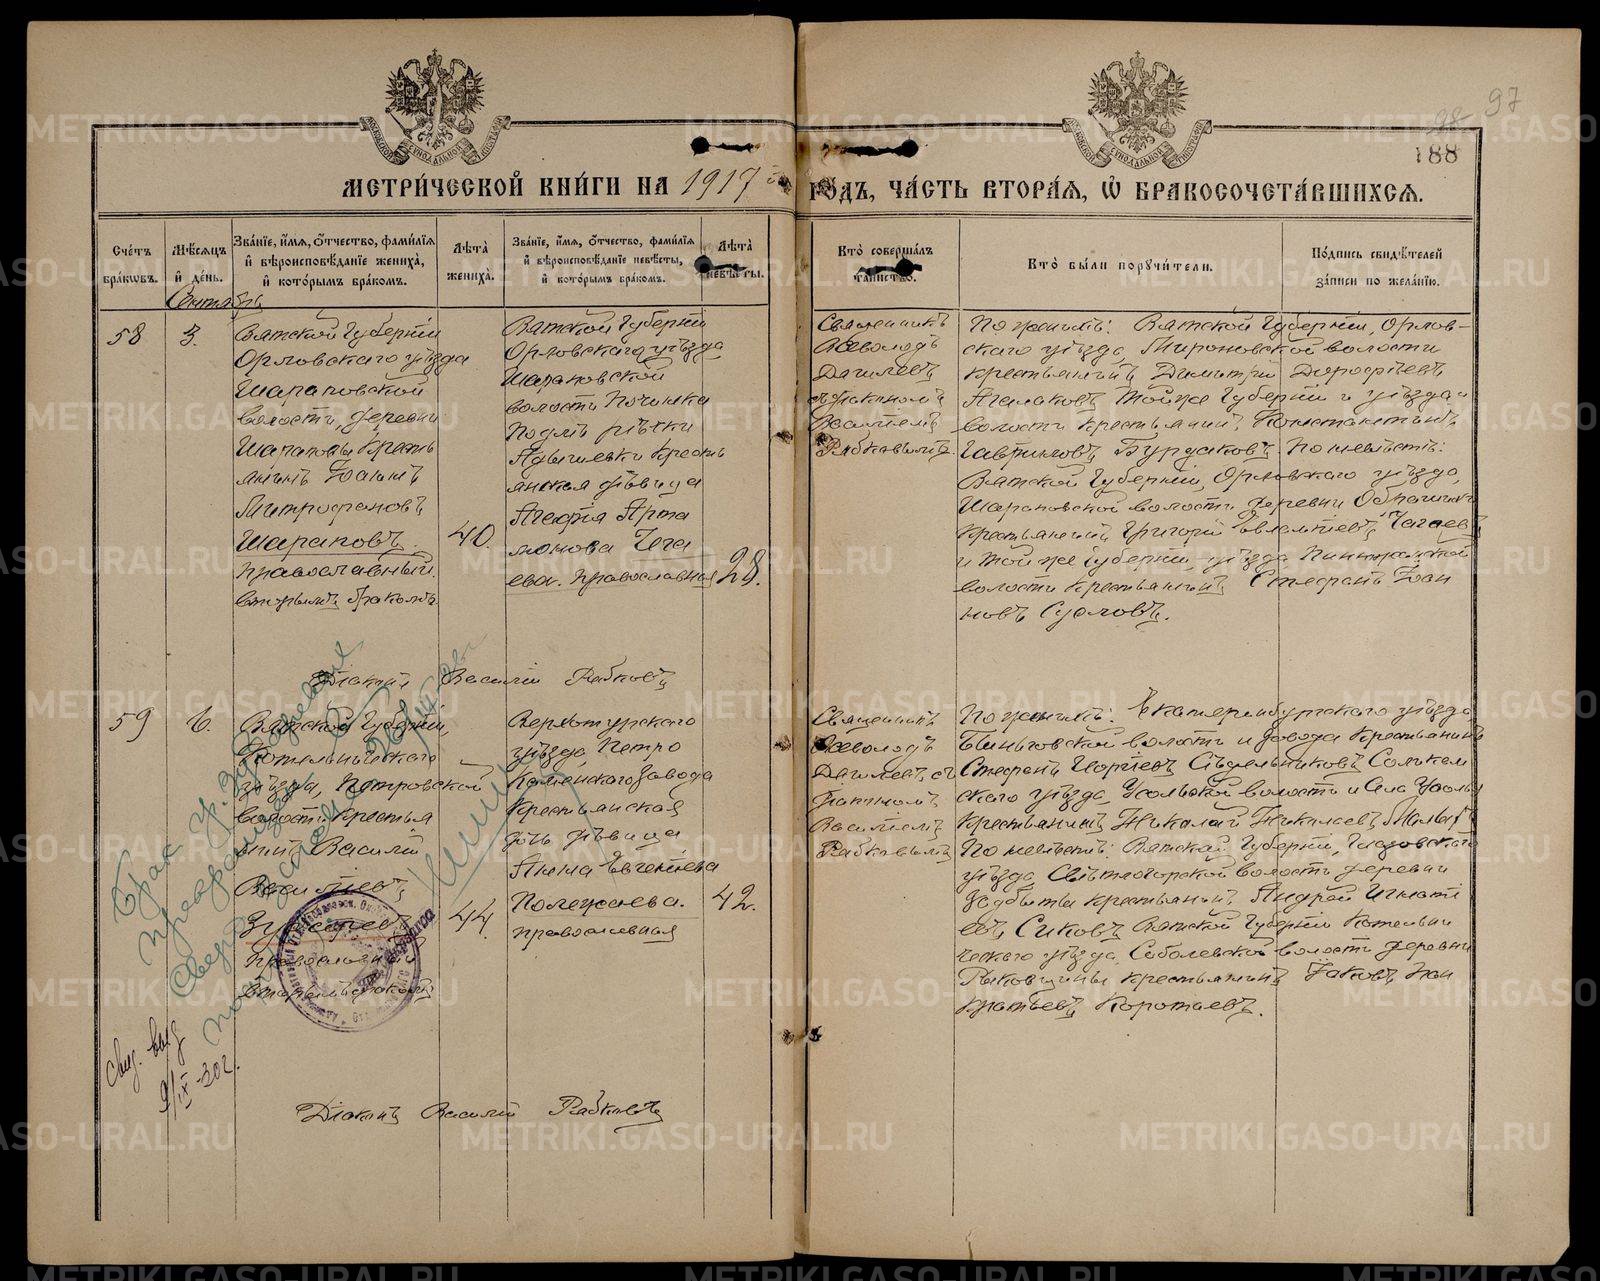 97
188
МЕТРИ́ЧЕСКОЙ КНИ́ГИ НА 1917 ГО́ДЪ, ЧА́СТЬ ВТОРА́Я, Ѡ БРАКОСОЧЕТА́ВШИХСЯ.
Сче́тъ бра́кѡвъ.
Мѣ́сяцъ и҆ де́нь.
Зва́нїе, и҆́мя, ѻ҆́тчество, фами́лїя и҆ вѣроисповѣ́данїе жениха̀, и҆ кото́рымъ бра́комъ.
Лѣ́та жениха̀.
Зва́нїе, и҆́мя, ѻ҆́тчество, фами́лїя и҆ вѣроисповѣ́данїе невѣ́сты, и҆ кото́рымъ бра́комъ.
Лѣ́та невѣ́сты.
Кто̀ соверша́лъ та́инство.
Кто̀ бы́ли поручи́тели.
По́дпись свидѣ́телей за́писи по жела́нїю.
Сентябрь
58
3.
Вятской Губерніи
Орловскаго уѣзда
Шараповской
волости, деревни
Шараповы Кресть
янинъ Іоаннъ
Митрофановъ
Шараповъ.
православный.
вторымъ бракомъ.
40.
Вятской Губерніи
Орловскаго уѣзда
Шараповской
волости Починка
Подлѣ рѣчки
Кресть
янская дѣвица
Агафія Арта
монова Чага
ева. православная
28.
Священникъ
Всеволодъ
Дагилевъ
съ Діакономъ
Василіемъ
Рябковымъ.
По женихѣ: Вятской Губерніи, Орлов-
скаго уѣзда, Мироновской волости
крестьянинъ Димитрій Дорофеевъ
Агалаковъ, Тойже Губерніи и уѣзда и
волости крестьянинъ Константинъ
Гавриловъ Бурдаковъ. По невѣстѣ:
Вятской Губерніи, Орловскаго уѣзда,
Шараповской волости деревни
крестьянинъ Григорій Чагаевъ
и той же Губерніи, уѣзда
волости крестьянинъ Стефанъ Іоан
новъ Сусловъ.
Діаконъ Василій Рябковъ
59
6.
Вятской Губерніи,
Котельническаго
уѣзда, Петровской
волости крестья
нинъ Василій
Василіевъ
православный
вторымъ бракомъ
44.
Верхотурскаго
уѣзда, Петро
Каменскаго Завода
Крестьянская
дочь дѣвица
Анна Евгеніева
Полежаева.
православная
42.
Священникъ
Всеволодъ
Дагилевъ съ
Діакономъ
Василіемъ
Рябковымъ
По женихѣ: Екатеринбургскаго уѣзда,
Быньговской волости и завода крестьянинъ
Стефанъ Георгіевъ Сѣдельниковъ Соликам
скаго уѣзда, Усольской волости и села Усолья
крестьянинъ Николай Николаевъ
По невѣстѣ: Вятской Губерніи, Глазовскаго
уѣзда, Свѣтлогорской волости деревни
крестьянинъ Андрей Игнаті
евъ Сиковъ Вятской Губерніи Котельни
ческаго уѣзда, Соболевской волости деревни
крестьянинъ Іаковъ
Коротаевъ.
Діаконъ Василій Рябковъ
Брак
свид. выд
9/IX-30г.